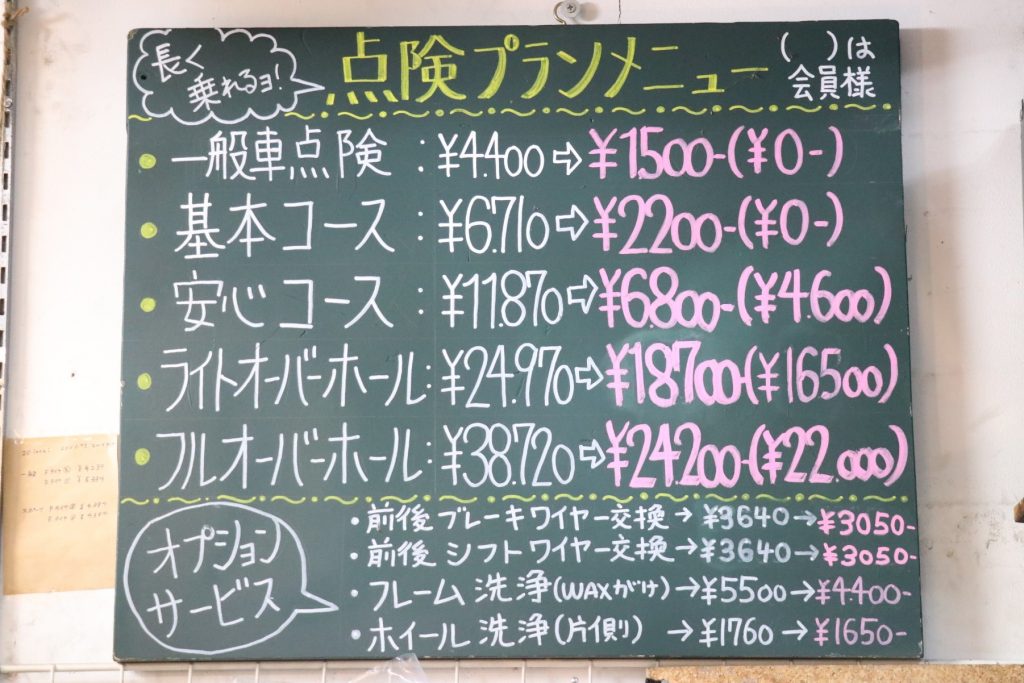 長く
乗れるヨ!
点険プランメニュー
( )は
会員様
・一般車点険:¥4.400⇨¥1.500-(¥0-)
・基本コース:¥6.710⇨¥2200-(¥0-)
・安心コース:¥11.870⇨¥6.800-(¥4.600)
・ライトオーバーホール:¥24.970⇨¥18.700-(¥16500)
・フルオーバーホール:¥38.720⇨¥24.200-(¥22.000)
オプション
サービス
・前後ブレーキワイヤー交換→¥3640→¥3050-
・前後シフトワイヤー交換→¥3640→¥3050-
・フレーム洗浄(WAXがけ)→¥5500→¥4.400-
・ホイール洗浄(片側)→¥1760→¥1650-